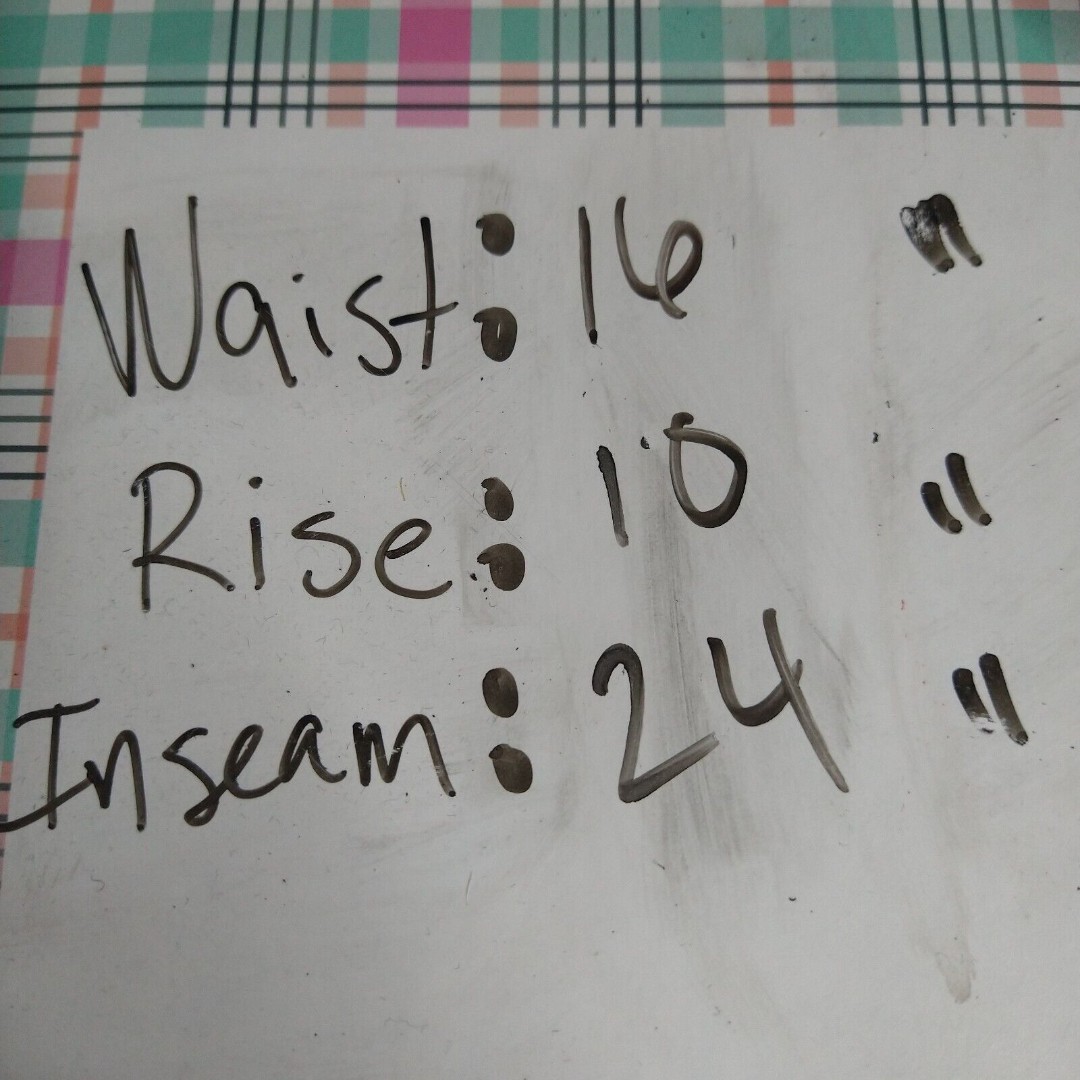 Waist: 16 "
Rise: 10 "
Inseam: 24 "